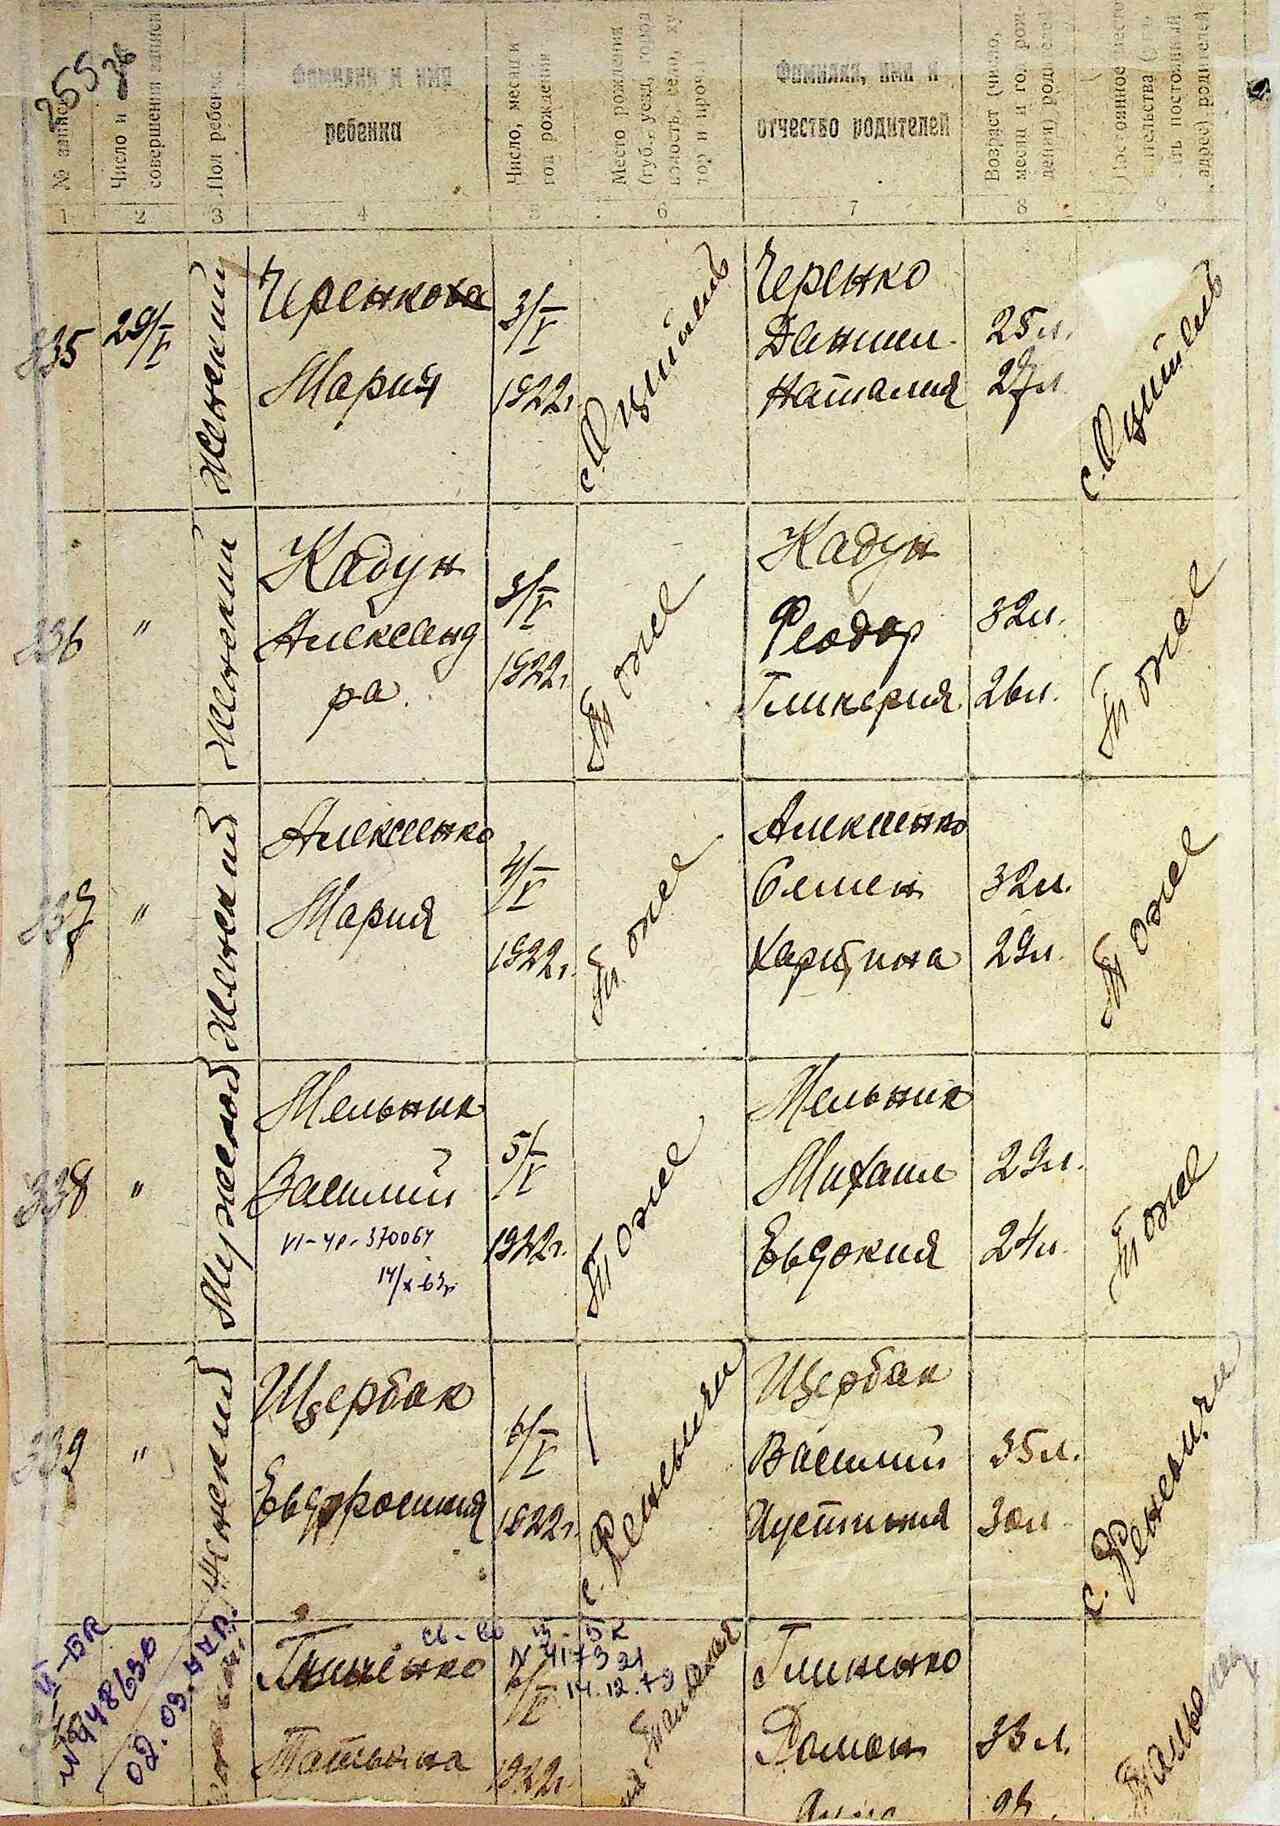 255
№ записи
Число и
совершения записи
Пол ребенка
Фамилия и имя
ребенка
Число, месяц и
год рождения
Место рождения
(губ., уезд, город
волость, село, ху
тор и проч.
Фамилия, имя и
отчество родителей
Возраст (число,
месяц и год рож-
дения) родителей
Постоянное место
жительства (
постоянный
адрес) родителей
1 2 3 4 5 6 7 8 9
335
29/V
Женский
Черенко
Мария
3/V
1922г.
Черенко
Даниил
Наталия
25л.
27л.
336
"
Женский
Кадун
Александ
ра.
3/V
1922г.
Тоже
Кадун
Феодор
Гликерия
32л.
26л.
Тоже
337
"
Женский
Алексенко
Мария
4/V
1922г.
Тоже
Алексенко
Семен
Харитина
32л.
29л.
Тоже
338
"
Мужской
Мельник
Василий
VI-УР-370064
14/X-63г.
5/V
1922г.
Тоже
Мельник
Михаил
Евдокия
29л.
24л.
Тоже
339
"
Женский
Щербак
Евфросиния
6/V
1922г.
с. Реневичи
Щербак
Василий
Иустиния
35л.
30л.
с. Реневичи
II-БК
02.03.
Глиненко
Татьяна
14.12.79
6/V
1922г.
Глиненко
Роман
Анна
33л.